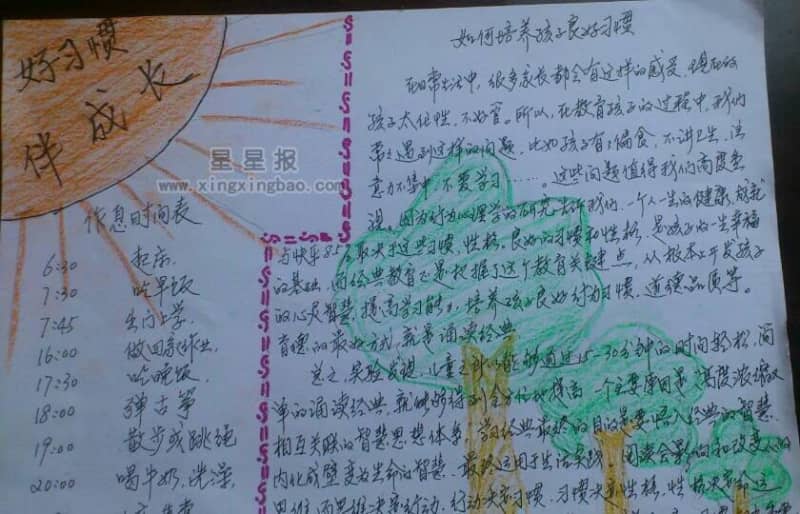 好习惯
伴成长
星星报
www.xingxingbao.com
作息时间表
6:30 起床
7:30 吃早饭
7:45 出门上学
16:00 做回家作业
17:30 吃晚饭
18:00 弹古筝
19:00 散步或跳绳
20:00 喝牛奶、洗澡
如何培养孩子良好习惯
在日常生活中,很多家长都会有这样的感受,现在的
孩子太任性,不好管。所以,在教育孩子的过程中,我们
常常遇到这样的问题,比如孩子有偏食,不讲卫生,注
意力不集中,不爱学习……。这些问题值得我们高度重
视。因为行为心理学的研究告诉我们,一个人一生的健康、成就
与快乐85%取决于这些习惯、性格,良好的习惯和性格,是孩子一生幸福
的基础,而经典教育正是把握了这个教育关键点,从根本上开发孩子
的心灵智慧,提高学习能力,培养孩子良好行为习惯、道德品质等。
育德的最好方式,就是诵读经典
总之,实验发现,儿童每天能够通过15-30分钟的时间轻松、简
单的诵读经典,就能够得到全方位的提高,一个主要原因是高度浓缩又
相互关联的智慧思想体系,学习经典最终的目的是要悟入经典的智慧,
内化成转变为生命的智慧,最终运用于生活实践。阅读会影响和改变人的
思维,而思维决定行动,行动决定习惯,习惯决定性格,性格决定命运